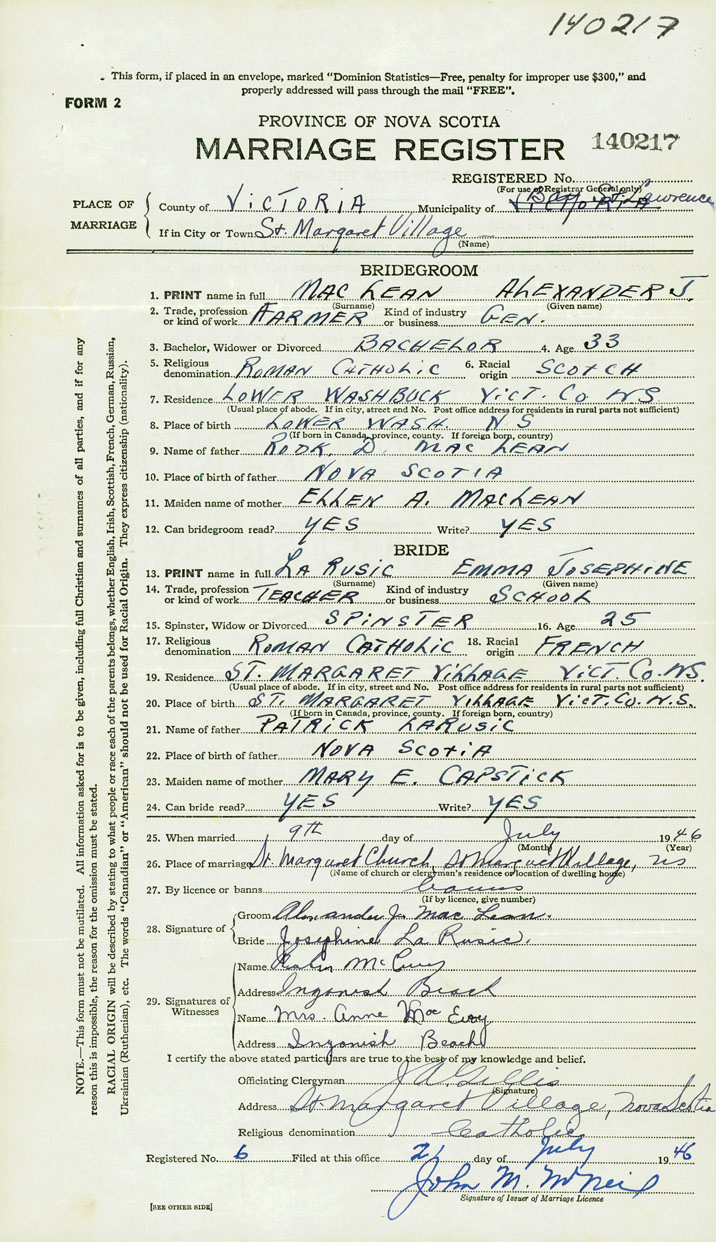 140217
This form, if placed in an envelope, marked "Dominion Statistics—Free, penalty for improper use $300," and
properly addressed will pass through the mail "FREE".
FORM 2
PROVINCE OF NOVA SCOTIA
MARRIAGE REGISTER 140217
REGISTERED No.
(For use of Registrar General only)
PLACE OF MARRIAGE
County of VICTORIA Municipality of VICTORIA Bay St. Lawrence
If in City or Town St. Margaret Village
(Name)
BRIDEGROOM
1. PRINT name in full MAC LEAN ALEXANDER J.
(Surname) (Given name)
2. Trade, profession or kind of work FARMER Kind of industry or business GEN.
3. Bachelor, Widower or Divorced BACHELOR 4. Age 33
5. Religious denomination ROMAN CATHOLIC 6. Racial origin SCOTCH
7. Residence LOWER WASHBUCK VICT. CO NS
(Usual place of abode. If in city, street and No. Post office address for residents in rural parts not sufficient)
8. Place of birth LOWER WASH. N S
(If born in Canada, province, county. If foreign born, country)
9. Name of father RODK. D. MAC LEAN
10. Place of birth of father NOVA SCOTIA
11. Maiden name of mother ELLEN A. MACLEAN
12. Can bridegroom read? YES Write? YES
BRIDE
13. PRINT name in full LA RUSIC EMMA JOSEPHINE
(Surname) (Given name)
14. Trade, profession or kind of work TEACHER Kind of industry or business SCHOOL
15. Spinster, Widow or Divorced SPINSTER 16. Age 25
17. Religious denomination ROMAN CATHOLIC 18. Racial origin FRENCH
19. Residence ST. MARGARET VILLAGE VICT. CO. NS.
(Usual place of abode. If in city, street and No. Post office address for residents in rural parts not sufficient)
20. Place of birth ST. MARGARET VILLAGE VICT. CO. N.S.
(If born in Canada, province, county. If foreign born, country)
21. Name of father PATRICK LARUSIC
22. Place of birth of father NOVA SCOTIA
23. Maiden name of mother MARY E. CAPSTICK
24. Can bride read? YES Write? YES
25. When married 9th day of July 1946
(Month) (Year)
26. Place of marriage St. Margaret Church, St Margaret Village, NS
(Name of church or clergyman's residence or location of dwelling house)
27. By licence or banns banns
(If by licence, give number)
28. Signature of
Groom Alexander J. Mac Lean.
Bride Josephine La Rusic.
29. Signatures of Witnesses
Name
Address Ingonish Beach
Name Mrs. Anne Mac Evoy
Address Ingonish Beach
I certify the above stated particulars are true to the best of my knowledge and belief.
Officiating Clergyman J A Gillis
(Signature)
Address St Margaret Village, Nova Scotia
Religious denomination Catholic
Registered No. 6 Filed at this office 21 day of July 1946
John M. McNeil
Signature of Issuer of Marriage Licence
[SEE OTHER SIDE]
NOTE.—This form must not be mutilated. All information asked for is to be given, including full Christian and surnames of all parties, and if for any
reason this is impossible, the reason for the omission must be stated.
RACIAL ORIGIN will be described by stating to what people or race each of the parents belongs, whether English, Irish, Scottish, French, German, Russian,
Ukrainian (Ruthenian), etc. The words "Canadian" or "American" should not be used for Racial Origin. They express citizenship (nationality).